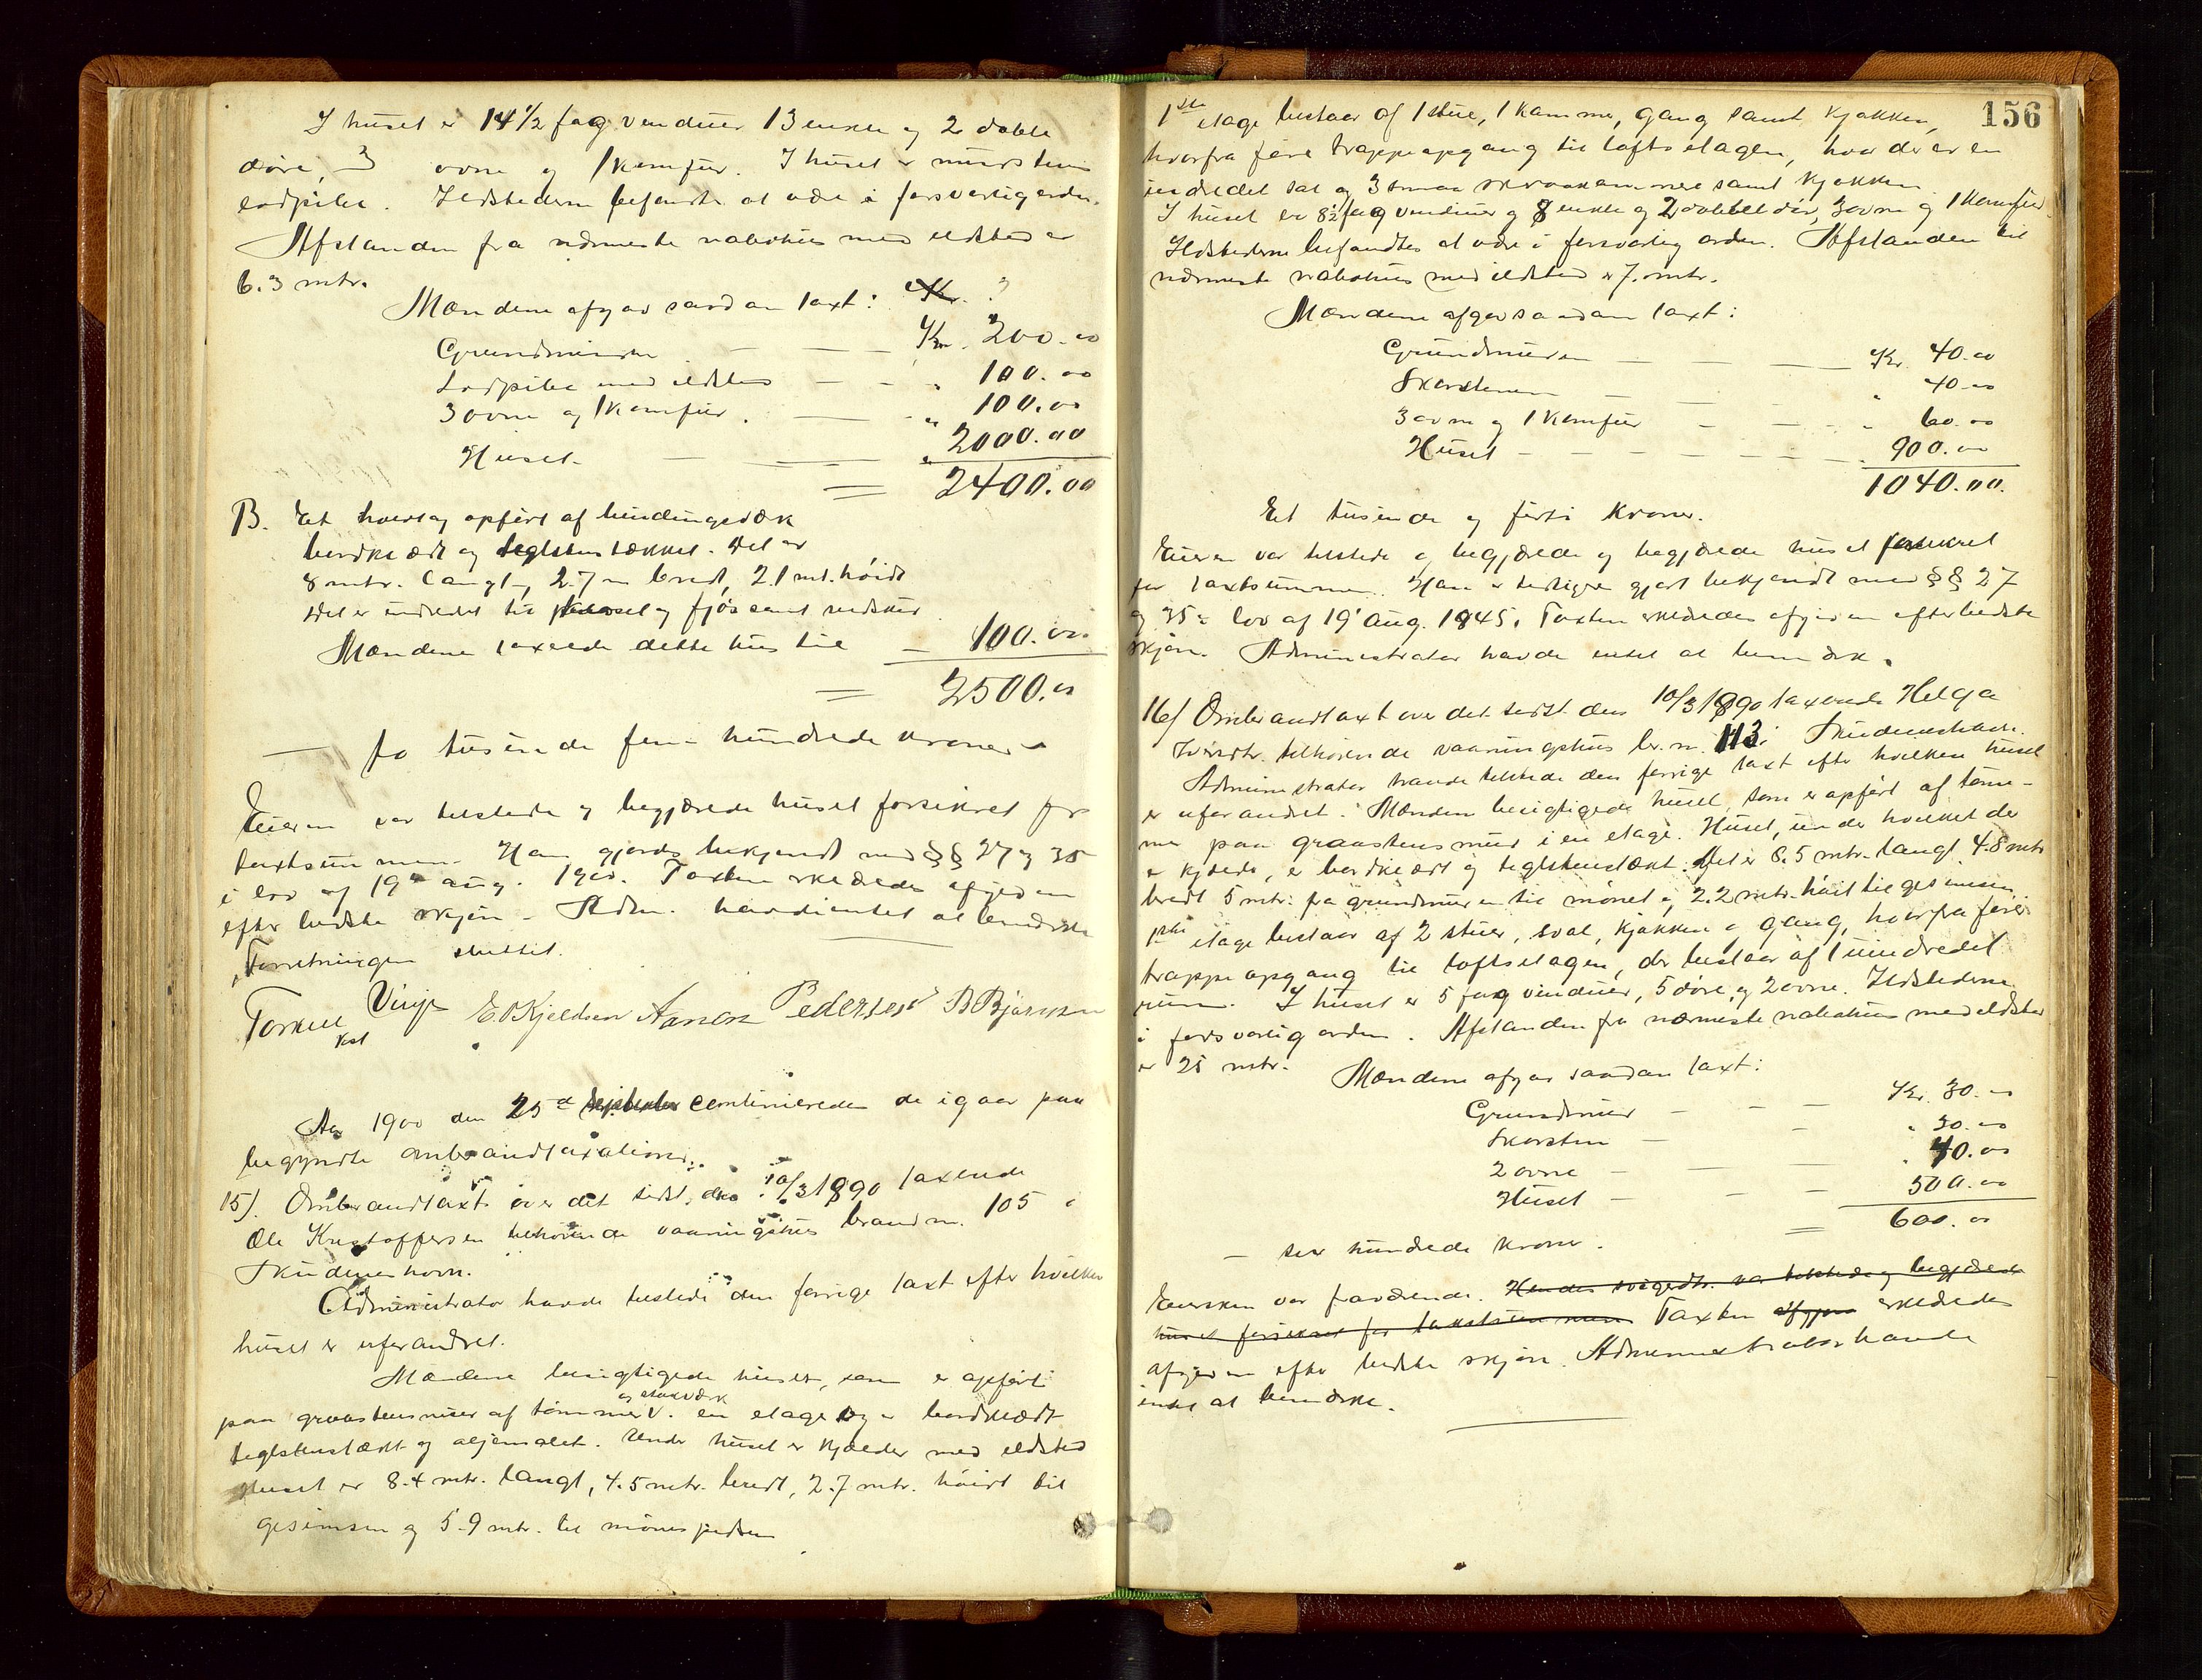 I huset er 14 1/2 fag vinduer 13 enkle og 2 doble
döre, 3 ovne og 1 komfur. I huset er murstens
lodpibe. Ildstederne befandtes at være i forsvarlig orden.
Afstanden fra nærmeste nabohus med ildsted er
6.3 mtr.
Mændene afgav saadan taxt: Kr.
Grundmuren — — — Kr. 200.00
Lodpibe med ildsted — — " 100.00
3 ovne og 1 komfur. — " 100.00
Huset — — — " 2000.00
= 2400.00
B. Et huus opfört af bindingsværk
bordklædt og teglstenstækket. Det er
8 mtr. langt, 2.7 m bredt, 2.1 mt. höidt
Det er indredet til og fjös samt vedskur
Mændene taxerede dette hus til — 100.00
= 2500.00
— to tusinde fem hundrede kroner —
Eieren var tilstede og begjærede huset forsikret for
taxtsummen. Han gjordes bekjendt med §§ 27 og 35
i lov af 19de aug. 1900. Taxten erklæredes afgiven
efter bedste skjön. Adm. havde intet at bemærke
Forretningen sluttet.
Torkell Vinje E. Kjeldsen Aanon Pedersen B Bjørnsen
kst
Aar 1900 den 25de continueredes de igaar paa
begyndte ombrandtaxationer.
15). Ombrandtaxt over det sidst den 10/3 1890 taxerede
Ole Kristoffersen tilhörende vaaningshus brand n. 105 i
Skudeneshavn.
Administrator havde tilstede den forrige taxt efter hvilken
huset er uforandret.
Mændene besigtigede huset, som er opfört
og stavværk
paa graastensmur af tömmer V. en etage og er bordklædt
teglstenstækt og oljemalet. Under huset er kjælder med ildsted
Huset er 8.4 mtr. langt, 4.5 mtr. bredt, 2.7 mtr. höidt til
gesimsen og 5.9 mtr. til mönespidsen
156
1ste etage bestaar af 1 stue, 1 kammer, gang samt kjökken,
hvorfraförer trappeopgang til loftsetagen, hvor der er en
indredet sal og 3 smaa skraakammere samt kjökken.
I huset er 8 1/2 fag vinduer og 8 enkle og 2 dobbelt dör, 3 ovne og 1 komfur.
Ildstederne befandtes at være i forsvarlig orden. Afstanden til
nærmeste nabohus med ildsted er 7. mtr.
Mændene afgav saadan taxt:
Grundmuren — — — Kr. 40.00
Skorstenen — — " 40.00
3 ovne og 1 komfur — — " 60.00
Huset — — — — 900.00
1040.00.
Et tusinde og firti kroner.
Eieren var tilstede og begjærede og begjærede huset forsikret
for taxtsummen. Han er tidligere gjort bekjendt med §§ 27
og 35 i lov af 19' aug. 1845. Taxten erklæredes afgiven efter bedste
skjön. Administrator havde intet at bemærke.
16/ Ombrandtaxt over det sidst den 10/3 1890 taxerede Helga
Iversdtr. tilhörende vaaningshus br. n. 113 i Skudeneshavn.
Administrator havde tilstede den forrige taxt efter hvilken huset
er uforandret. Mændene besigtigede huset, som er opfört af töm-
mer paa graastensmur i en etage. Huset, under hvilket der
er kjælder, er bordklædt og teglstenstækt. Det er 8.5 mtr. langt 4.8 mtr
bredt 5 mtr. fra grundmuren til mönet og 2.2 mtr. höit til gesimsen
1ste etage bestaar af 2 stuer, sval, kjökken og gang, hvorfra förer
trappeopgang til loftsetagen, der bestaar af 1 uindredet
rum. I huset er 5 fag vinduer, 5 döre, og 2 ovne. Ildstederne
i forsvarlig orden. Afstanden fra nærmeste nabohus med ildsted
er 25 mtr.
Mændene afgav saadan taxt:
Grundmur — — — Kr. 30.00
Skorsten — — " 30.00
2 ovne — — — " 40.00
Huset — — — 500.00
= 600.00
— sex hundrede kroner.
Eiersken var fraværende. Hendes svigerdtr. var tilstede og begjærede
huset forsikret for taxtsummen Taxten afgiven erklæredes
afgiven efter bedste skjön. Administrator havde
intet at bemærke.